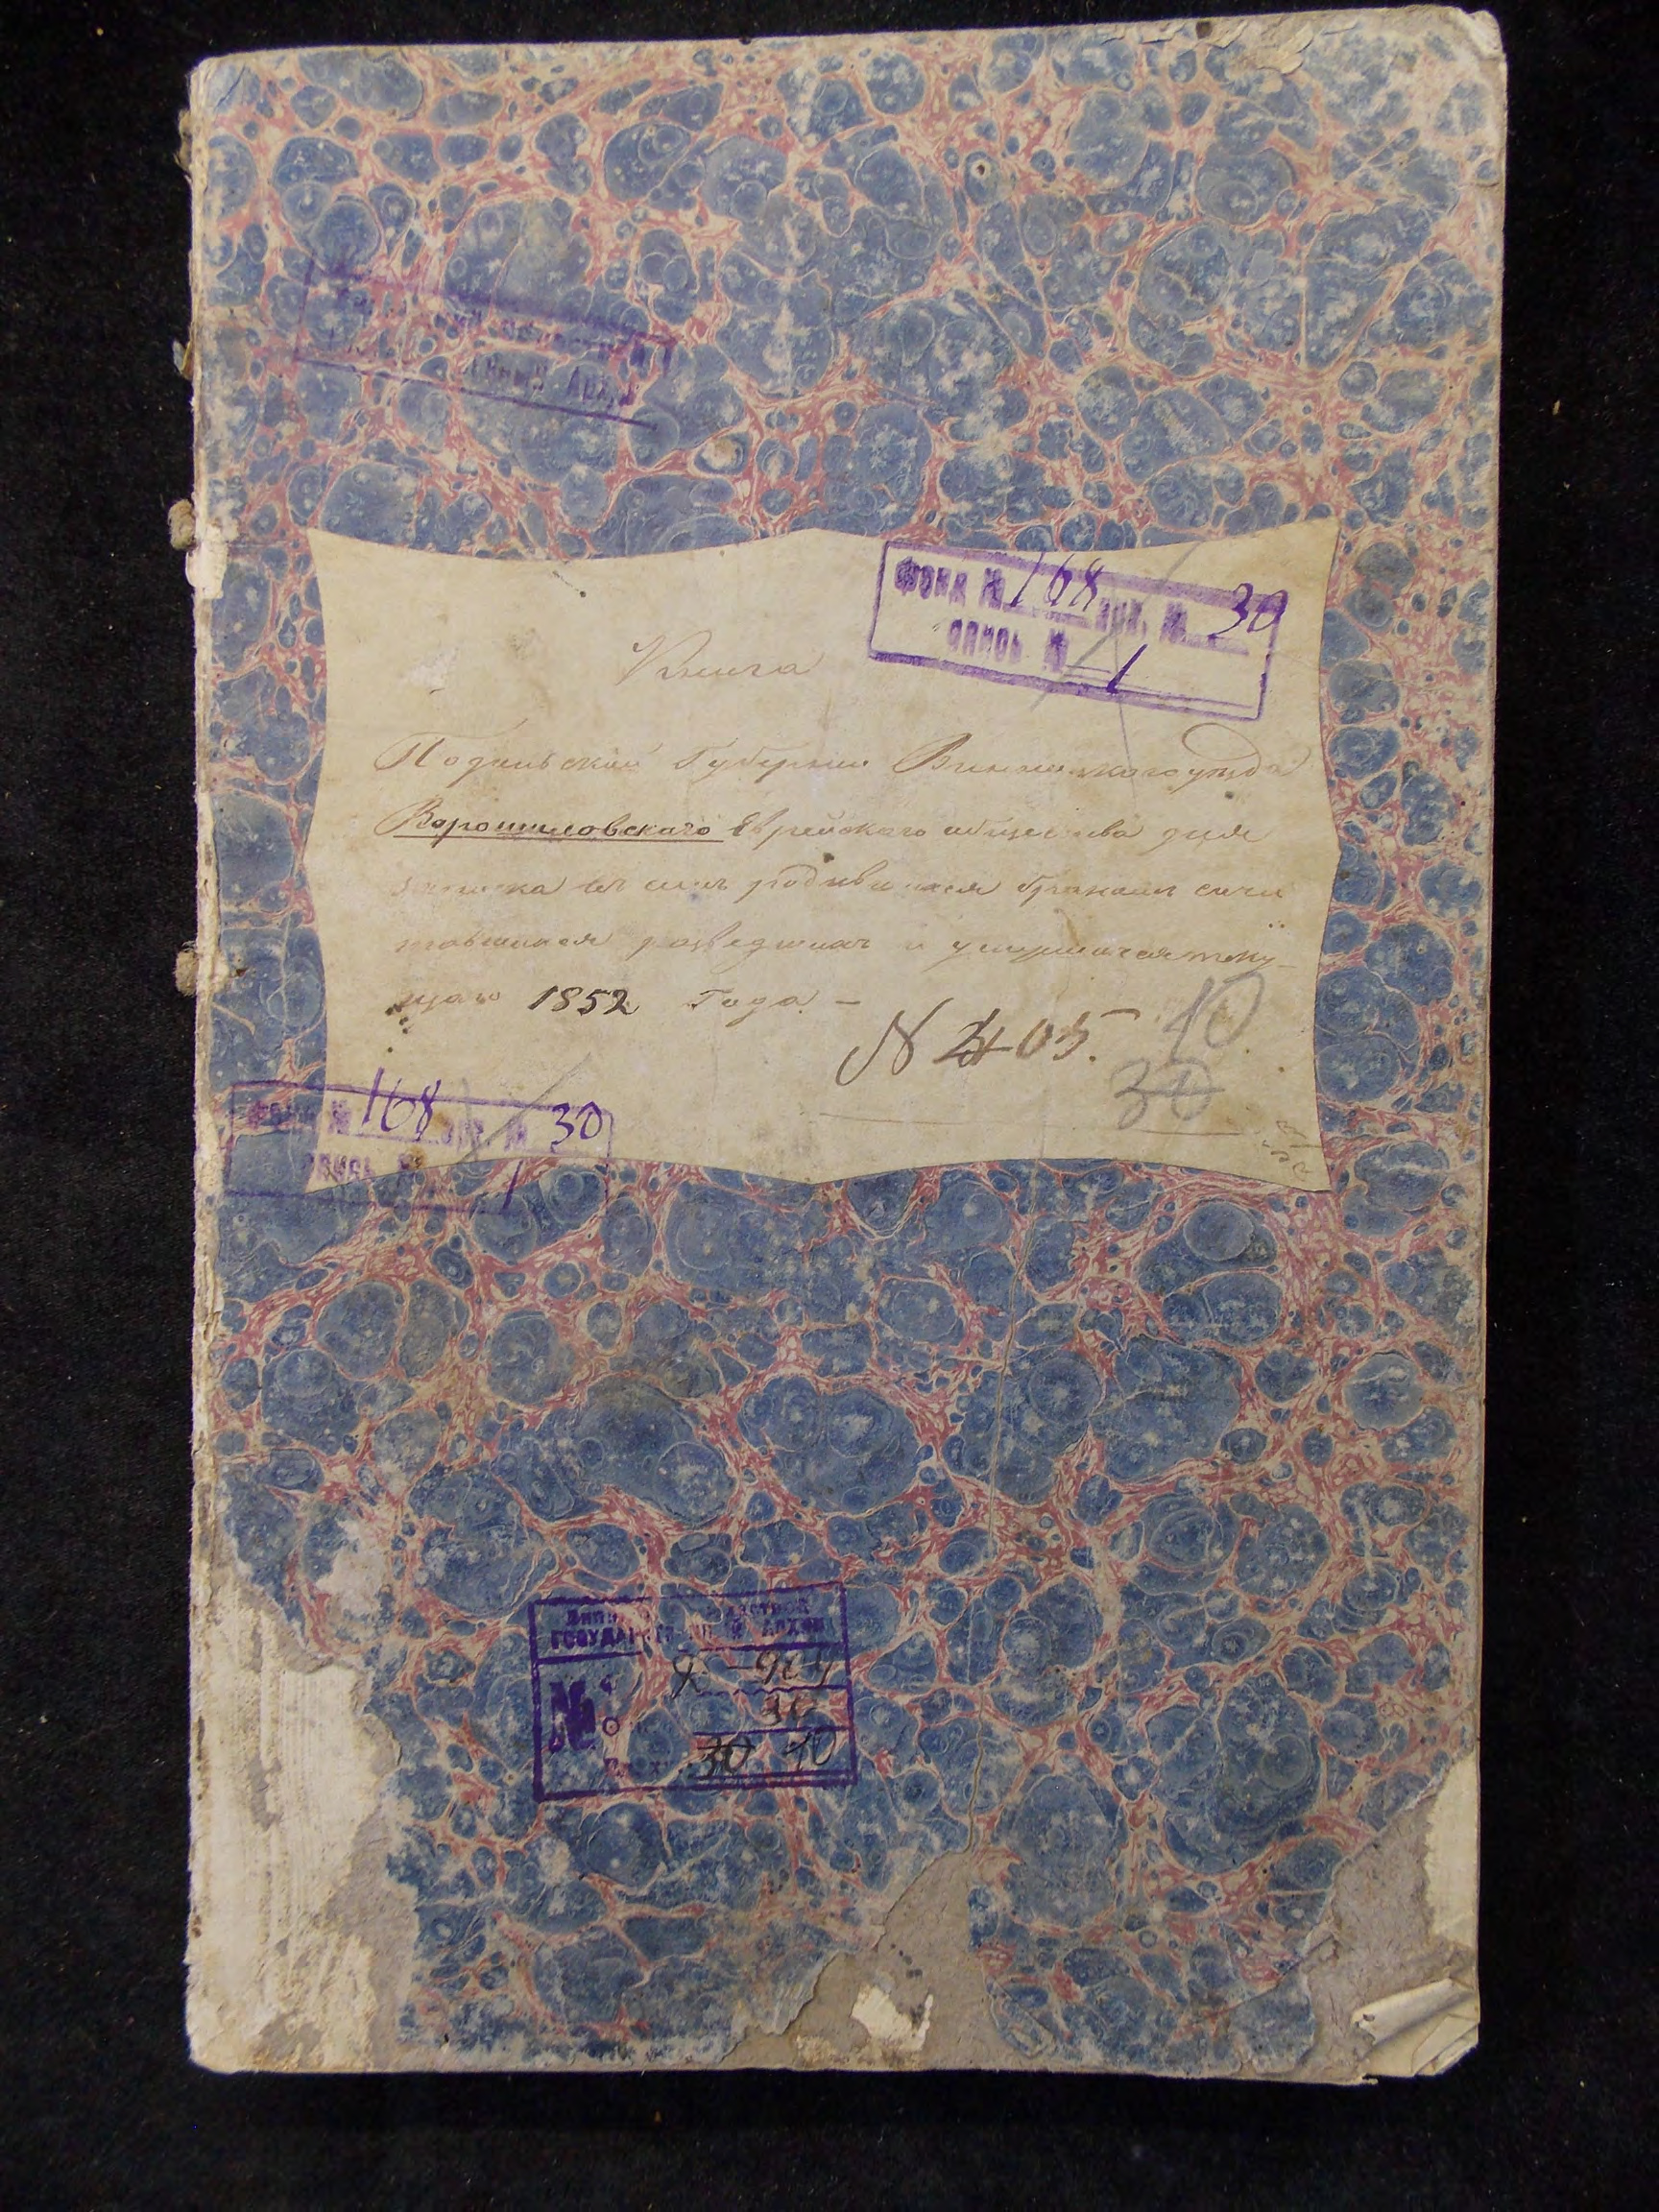 областной
Архив
ФОНД № 168 арх. № 30
опись № 1
Книга
Подольской Губернии Винницкого уезда
Ворошиловскаго Еврейскаго общества для
записка въ сихъ родившихся бракомъ сочи
тавшихся разведшихся и умершихся теку-
щаго 1852 Года –
N 2405.
10
30
ФОНД № 168 арх. № 30
опись № 1
ГОСУДАРСТВЕННЫЙ АРХИВ
№
Ф
О
30 10